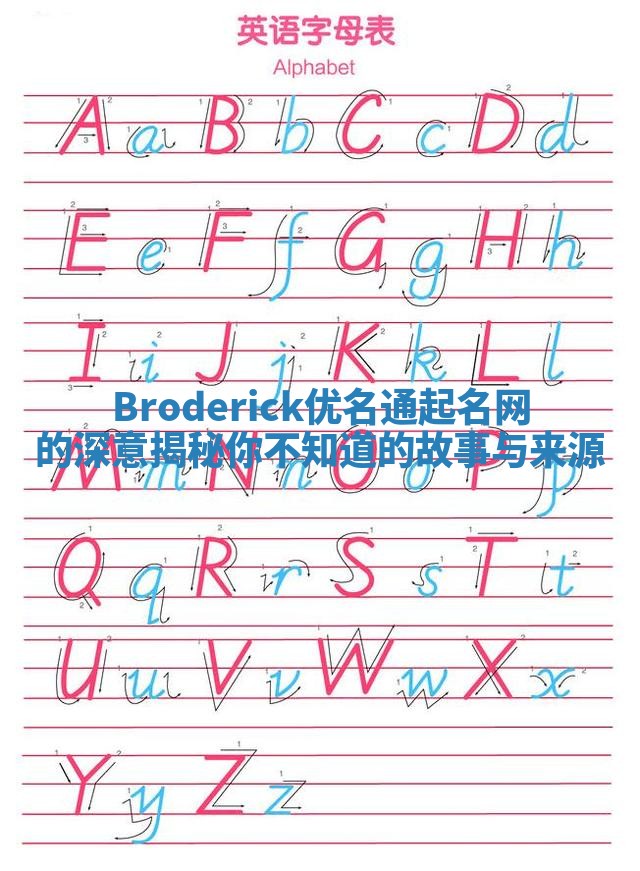 英语字母表
Alphabet
A a B b C c D d
E e F f G g H h
I i J j K k L l
Broderick优名通起名网
的深意揭秘你不知道的故事与来源
M m N n O o P p
Q q R r S s T t
U u V v W w X x
Y y Z z